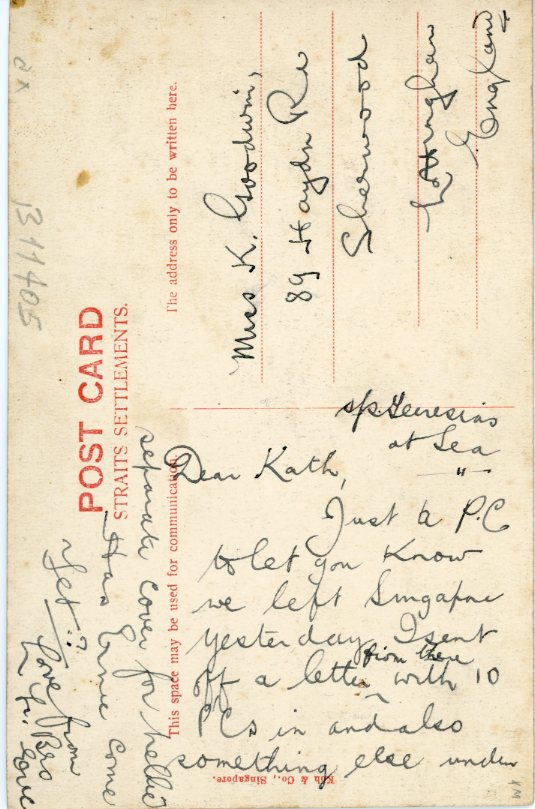 POST CARD
STRAITS SETTLEMENTS.
This space may be used for communication.
The address only to be written here.
Miss K. Goodwin,
89 Haydn Rd
Sherwood
Nottingham
England
s/s Teiresias
at Sea
"
Dear Kath,
Just a P.C
to let you know
we left Singapore
yesterday. I sent
off a letter from there with 10
PCs in and also
something else under
separate cover for Nellie
Has Ernie come
yet?
Love from
Bro
311405
Koh & Co., Singapore.